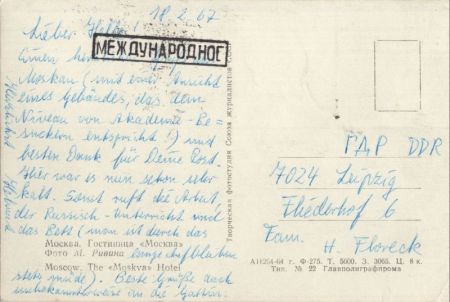 18.2.67
Lieber
МЕЖДУНАРОДНОЕ
Moskau (mit einer Ansicht
eines Gebäudes, das dem
Niveau von Akademie-Be-
suchern entspricht!) und
besten Dank für Deine Post.
Hier war es nun schon sehr
kalt. Sonst ruft die Arbeit,
der Russisch-Unterricht und
das Bett (man ist durch das
lange Aufbleiben
stets müde). Beste Grüße auch
unbekannterweise an die Gattin.
Herzlichst
Helmut
Москва. Гостиница «Москва»
Фото М. Ривина
Moscow. The «Moskva» Hotel
Творческая фотостудия Союза журналистов СССР
ГДР DDR
7024 Leipzig
Fliederhof 6
Fam. H. Floreck
А11264-64 г. Ф-275. Т. 5000. З. 3065. Ц. 8 к.
Тип. № 22 Главполиграфпрома